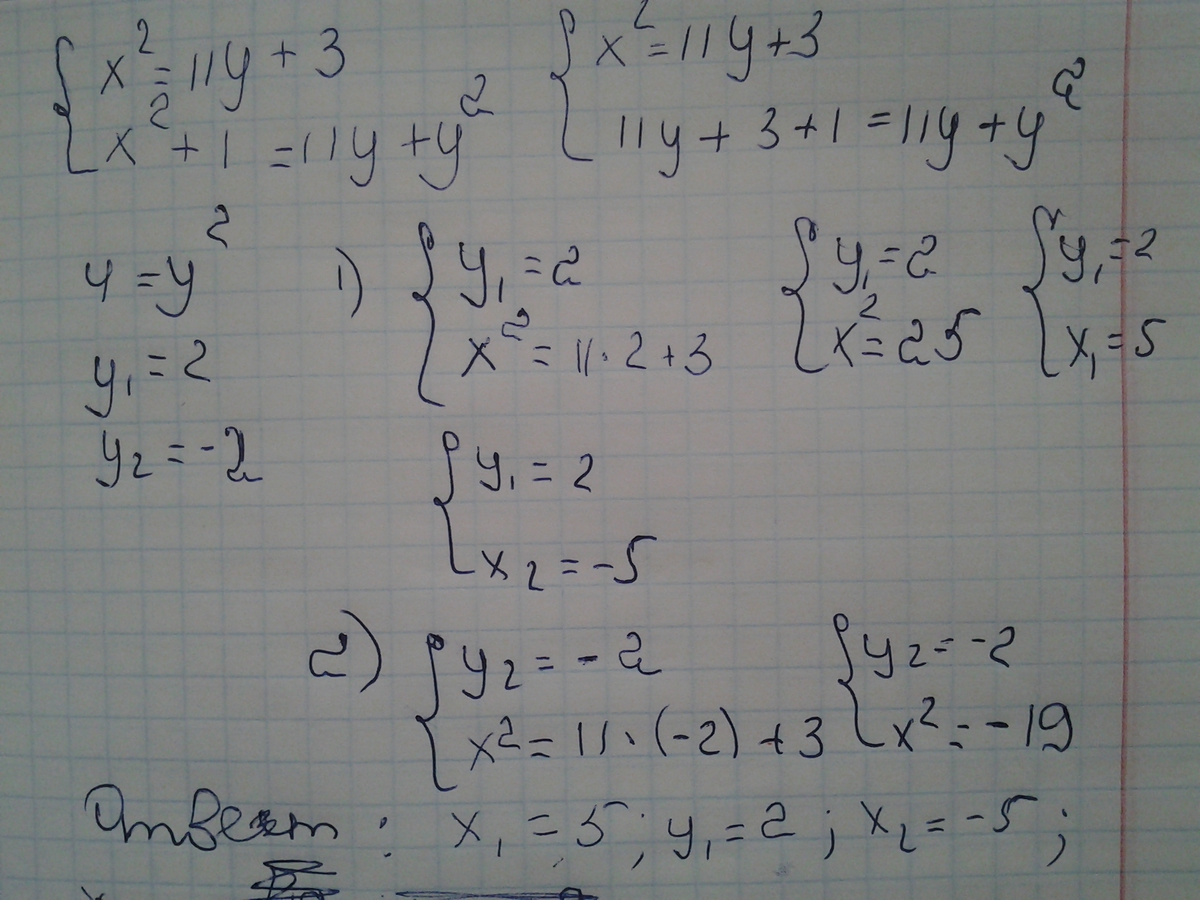 { x² = 11y + 3
{ x² + 1 = 11y + y²
{ x² = 11y + 3
{ 11y + 3 + 1 = 11y + y²
4 = y²
y₁ = 2
y₂ = -2
1)
{ y₁ = 2
{ x² = 11 · 2 + 3
{ y₁ = 2
{ x² = 25
{ y₁ = 2
{ x₁ = 5
{ y₁ = 2
{ x₂ = -5
2)
{ y₂ = -2
{ x² = 11 · (-2) + 3
{ y₂ = -2
{ x² = -19
Ответ: x₁ = 5; y₁ = 2; x₂ = -5;